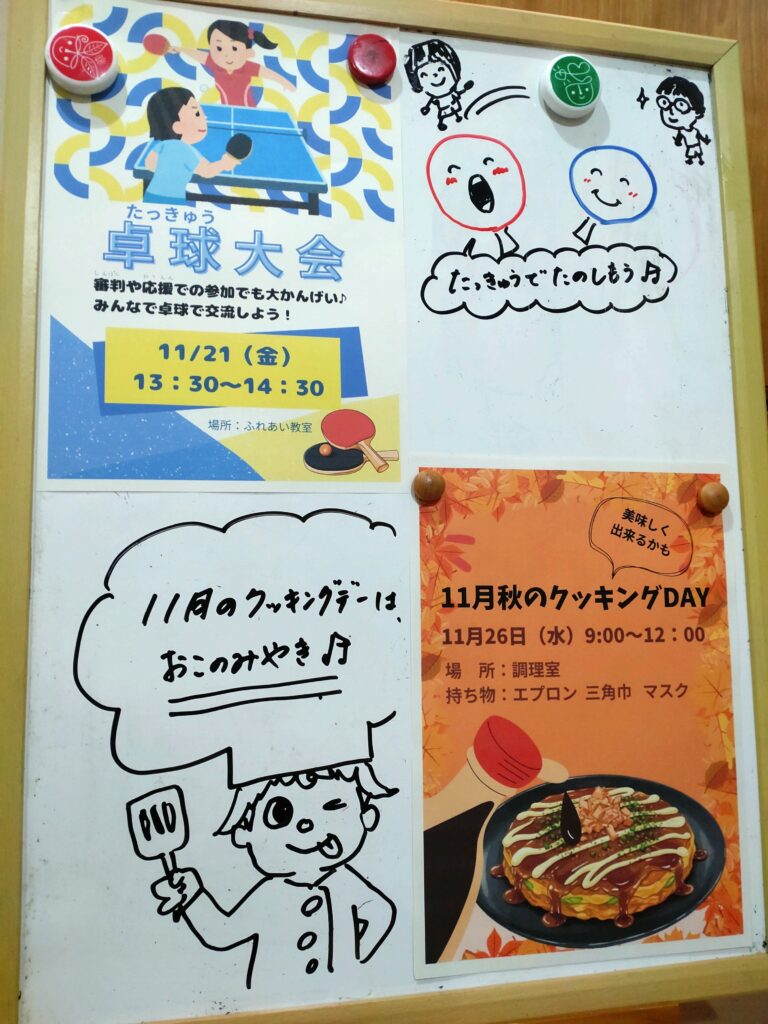 たっきゅう
卓球大会
しんぱん おうえん
審判や応援での参加でも大かんげい♪
みんなで卓球で交流しよう！
11/21（金）
13：30〜14：30
場所：ふれあい教室
たっきゅうでたのしもう♫
11月のクッキングデーは、
おこのみやき♫
美味しく
出来るかも
11月秋のクッキングDAY
11月26日（水）9:00〜12：00
場　所：調理室
持ち物：エプロン 三角巾 マスク